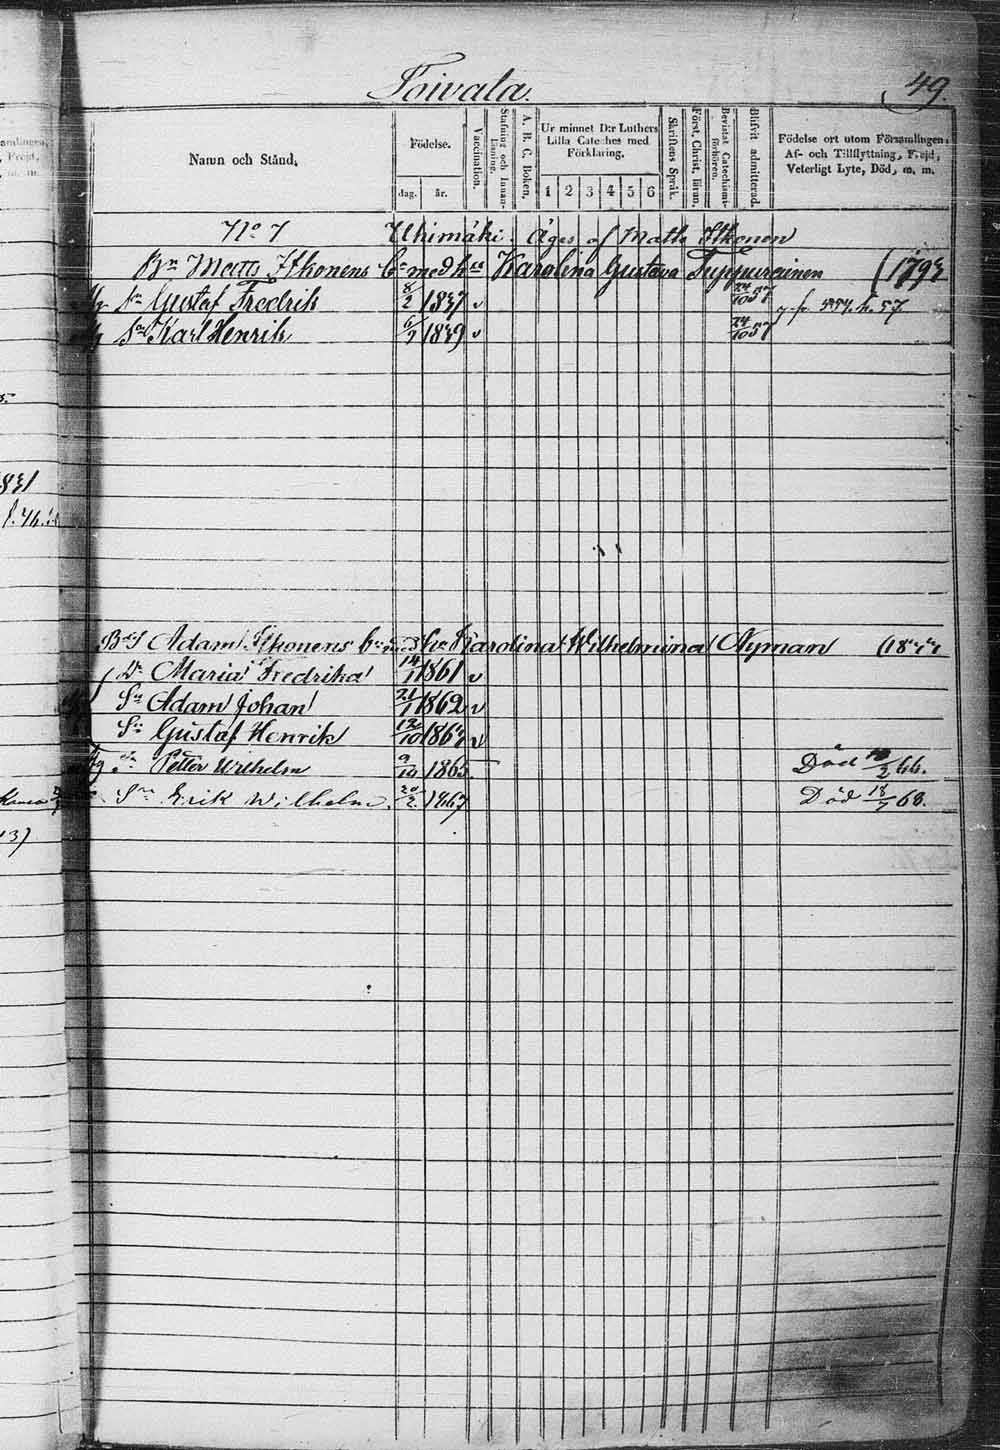 Toivala.
49.
Namn och Stånd.
Födelse.
dag.
år.
Vaccination.
Stafning och Innan-läsning.
A. B. C. Boken.
Ur minnet D:r Luthers Lilla Cateches med Förklaring.
1 2 3 4 5 6
Skriftens Språk.
Först. Christ. läran.
Bevistat Catechismi-förhören.
Blifvit admitterad.
Födelse ort utom Församlingen, Af- och Tillflyttning, Frejd, Veterligt Lyte, Död, m. m.
No 7 Uhimäki Äges af Matts Itkonen
Bn Matts Itkonens bn med h Karolina Gustava Tuppurainen (1793
Sn Gustaf Fredrik 8/2 1837 v 24/10 57
Sn Karl Henrik 1839 v 24/10 57
831
Bds Adam Itkonens bn h Karolina Wilhelmina Nyman
Dr Maria Fredrika 14/1 1861 v
Sn Adam Johan 21/1 1862 v
Sn Gustaf Henrik 12/10 186 v
Petter Wilhelm 1865 Död 2 66.
Sn Erik Wilhelm. 20/2 1867 Död 18/7 68.
13)